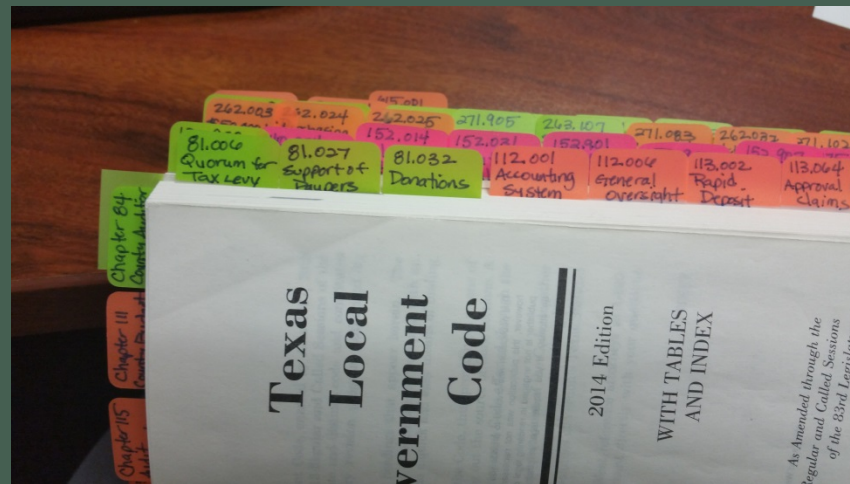 415.001
262.003
262.024
262.025
271.905
263.107
271.083
262.032
271.102
152.014
152.031
152.901
81.006
Quorum for
Tax Levy
81.027
Support of
Paupers
81.032
Donations
112.001
Accounting
System
112.006
General
Oversight
113.002
Rapid
Deposit
113.064
Approval
Claims
Chapter 84
County Auditor
Chapter 111
County
Chapter 115
Audit
Texas
Local
vernment
Code
2014 Edition
WITH TABLES
AND INDEX
As Amended through the
Regular and Called Sessions
of the 83rd